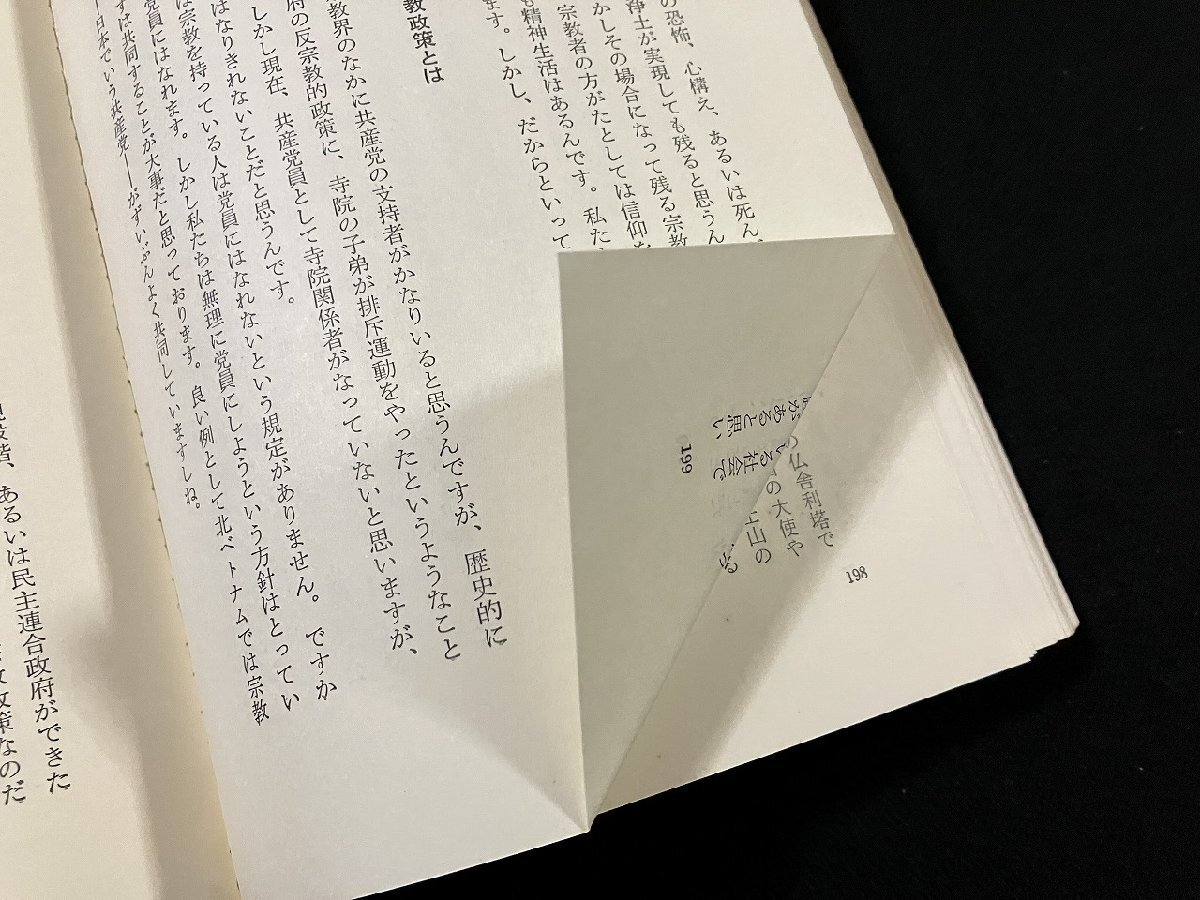 の恐怖、心構え、あるいは死ん
浄土が実現しても残ると思うん
かしその場合になって残る宗教
宗教者の方がたとしては信仰を
も精神生活はあるんです。私た
ます。しかし、だからといって
教政策とは
教界のなかに共産党の支持者がかなりいると思うんですが、歴史的に
府の反宗教的政策に、寺院の子弟が排斥運動をやったというようなこと
しかし現在、共産党員として寺院関係者がなっていないと思いますが、
はなりきれないことだと思うんです。
は宗教を持っている人は党員にはなれないという規定がありません。ですか
党員にはなれます。しかし私たちは無理に党員にしようという方針はとってい
ずは共同することが大事だと思っております。良い例として北ベトナムでは宗教
ー日本でいう共産党ーがずいぶんよく共同していますしね。
あるいは民主連合政府ができた
策なのだ
があると思い
いる社会で
199
の仏舎利塔で
の大使や
山の
198